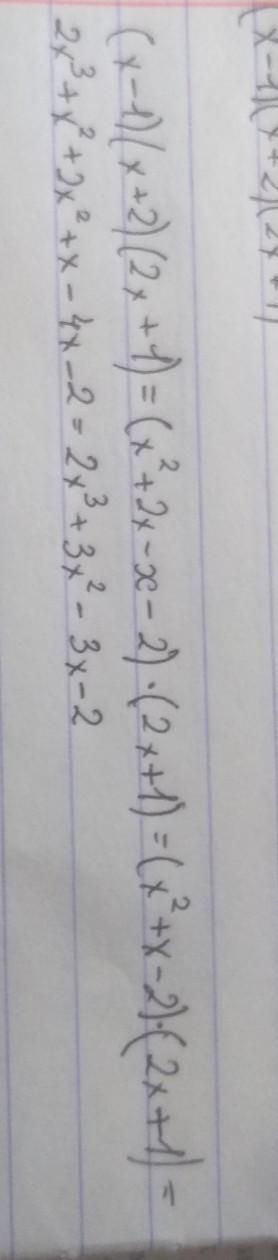 (x-1)(x+2)(2x+1)
(x-1)(x+2)(2x+1)=(x²+2x-x-2)·(2x+1)=(x²+x-2)·(2x+1)=
2x³+x²+2x²+x-4x-2=2x³+3x²-3x-2